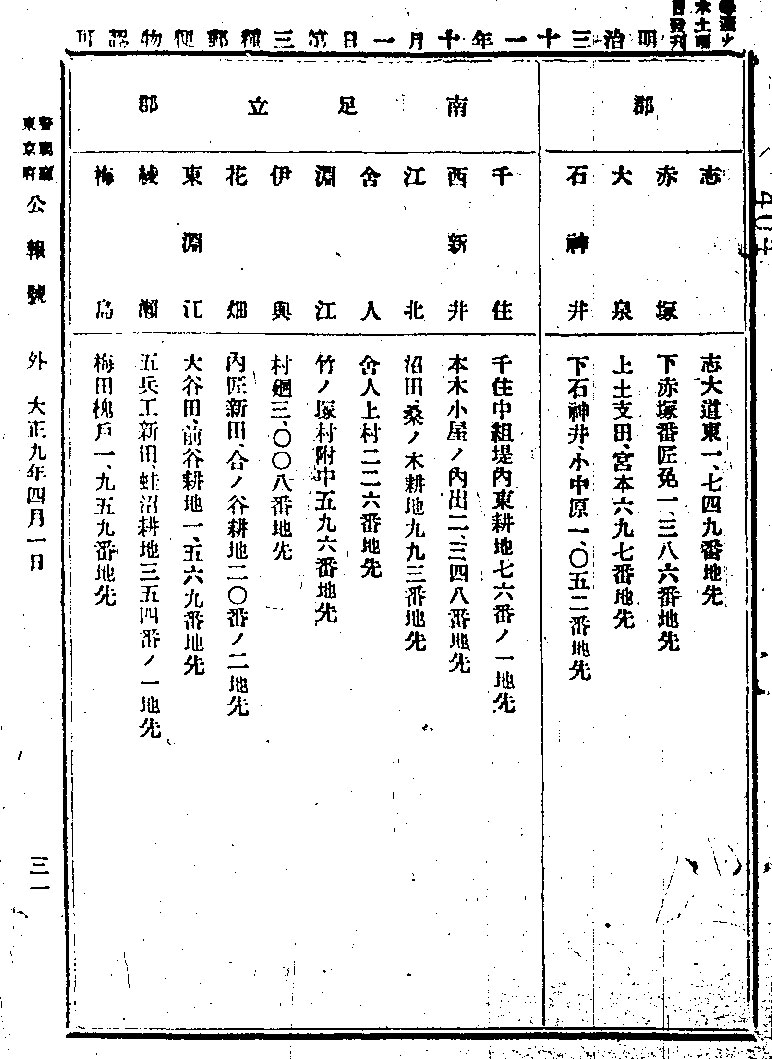 明治三十一年十月一日第三種郵便物認可
郡
志 志大道東一、七四九番地先
赤塚 下赤塚番匠免一、三八六番地先
大泉 上土支田、宮本六九七番地先
石神井 下石神井、小中原一、〇五二番地先
南足立郡
千住 千住中組堤內東耕地七六番ノ一地先
西新井 本木小屋ノ內出二、三四八番地先
江北 沼田、桑ノ木耕地九九三番地先
舍人 舍人上村二二六番地先
淵江 竹ノ塚村附中五九六番地先
伊興 村廻三、〇〇八番地先
花畑 內匠新田、合ノ谷耕地二〇番ノ二地先
東淵江 大谷田、前谷耕地一、五六九番地先
綾瀨 五兵工新田、蛙沼耕地三五四番ノ一地先
梅島 梅田槐戶一、九五九番地先
警視廳
東京府
公報號外 大正九年四月一日
三一